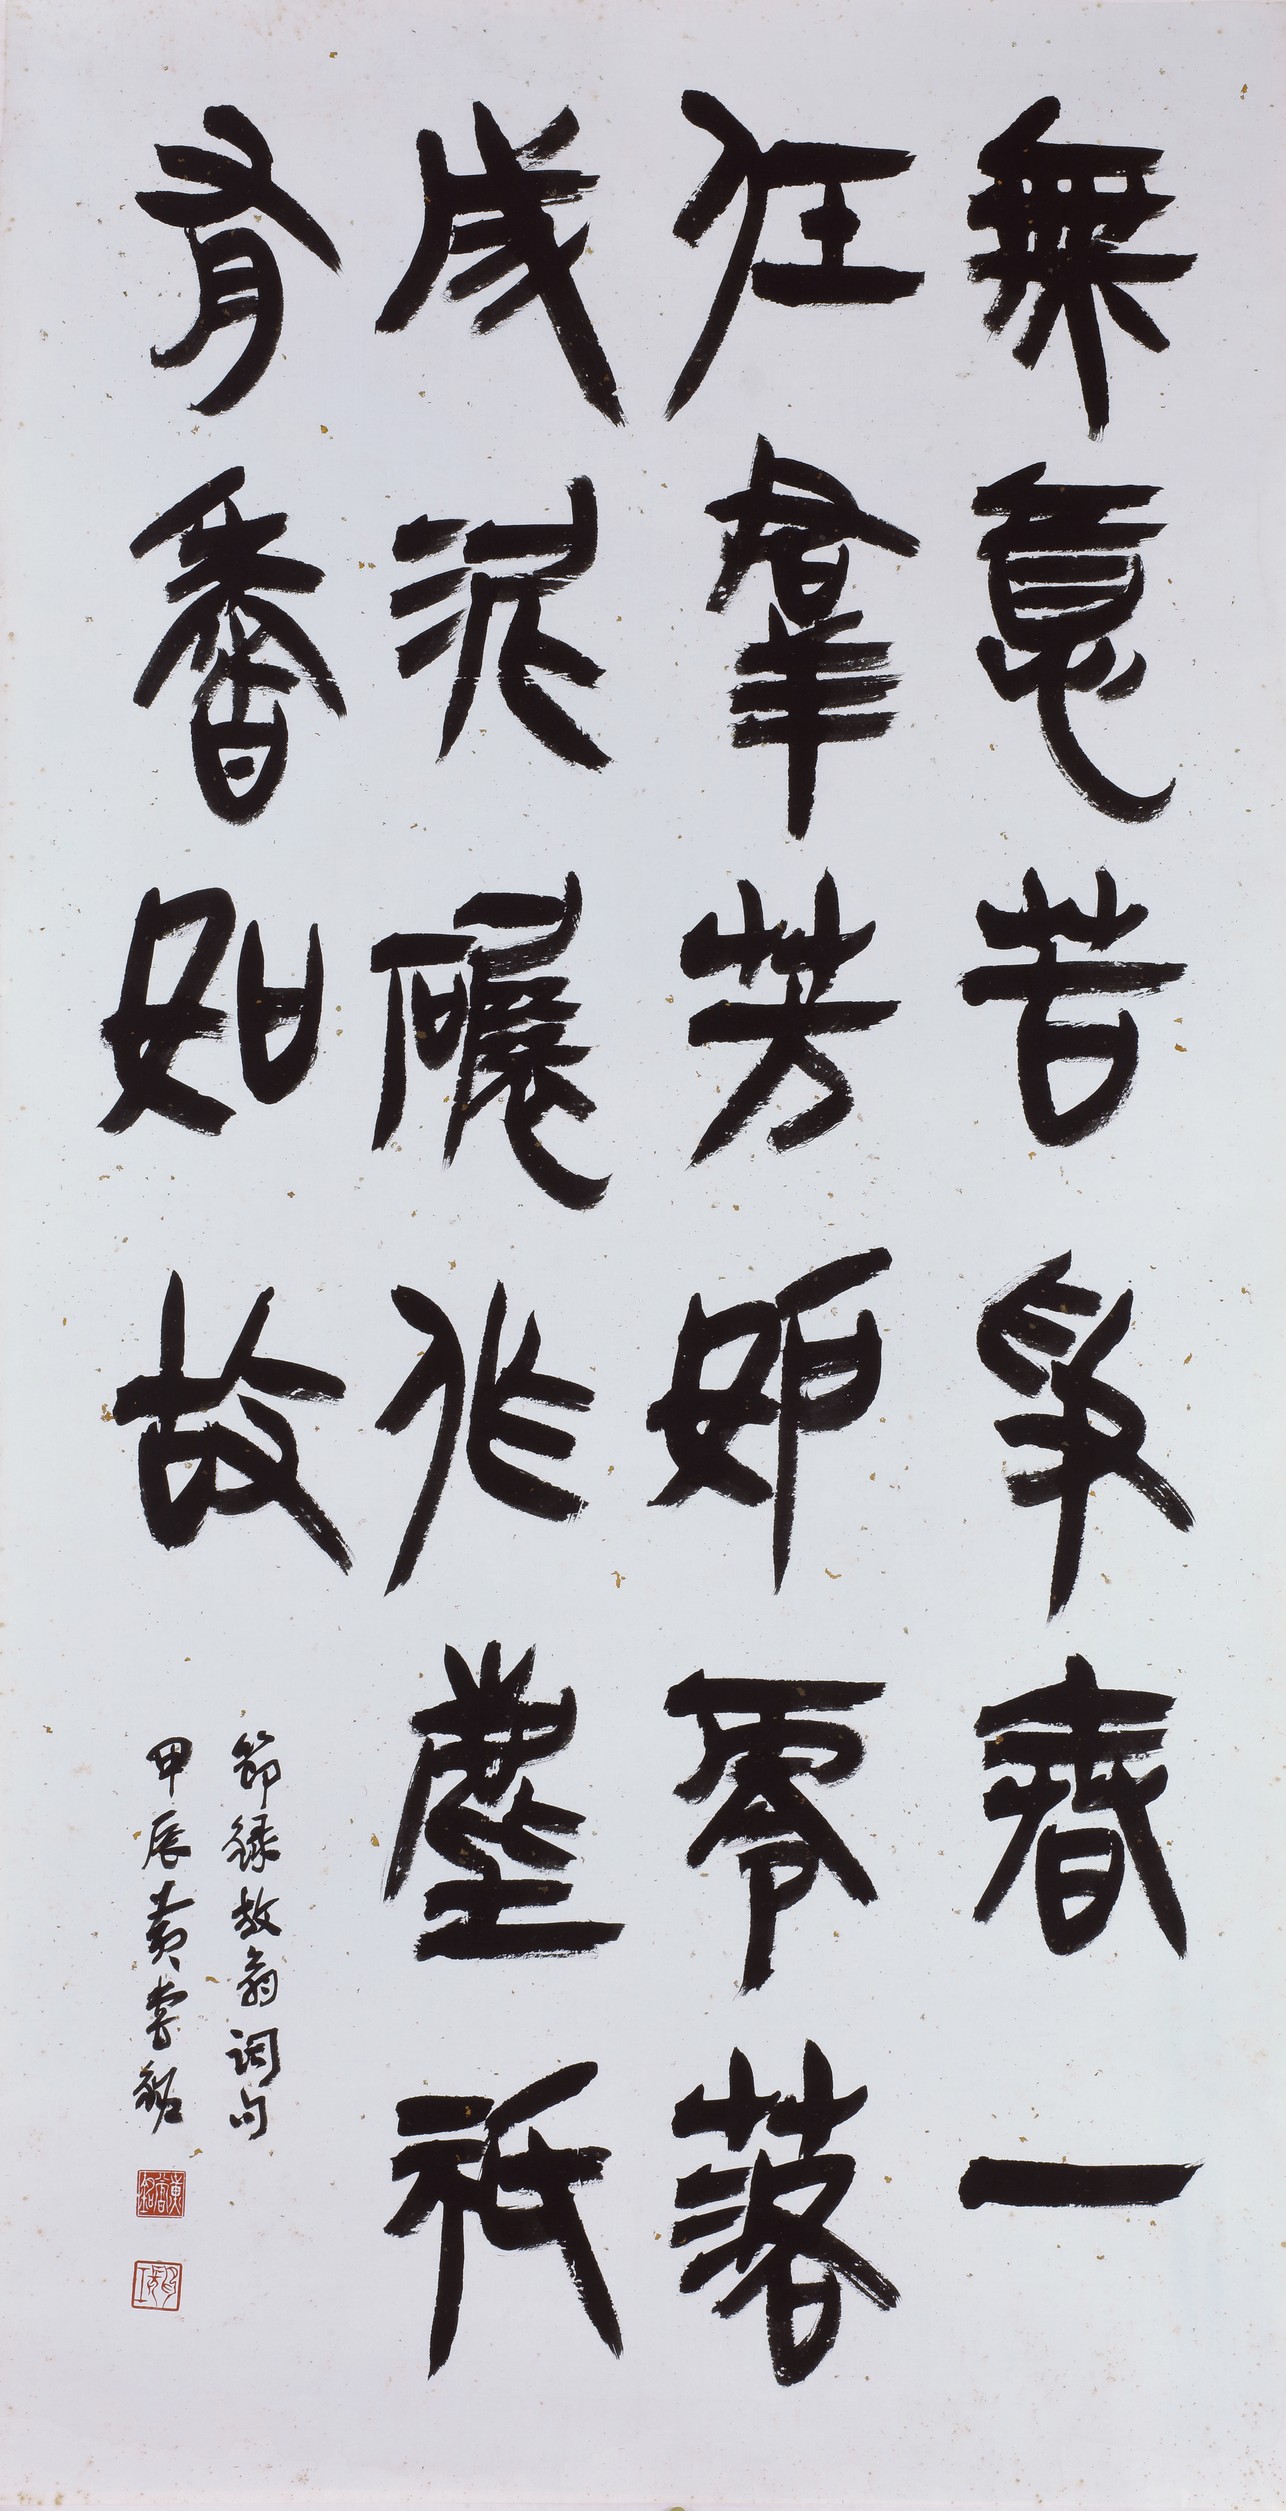 無意苦爭春一
任羣芳妒零落
成泥碾作塵祇
有香如故
節錄放翁詞句
甲辰黃嘗銘
黃嘗銘